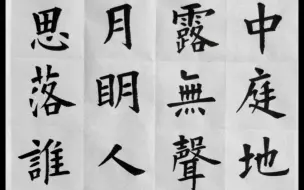 中庭地
露無聲
月眀人
思落誰